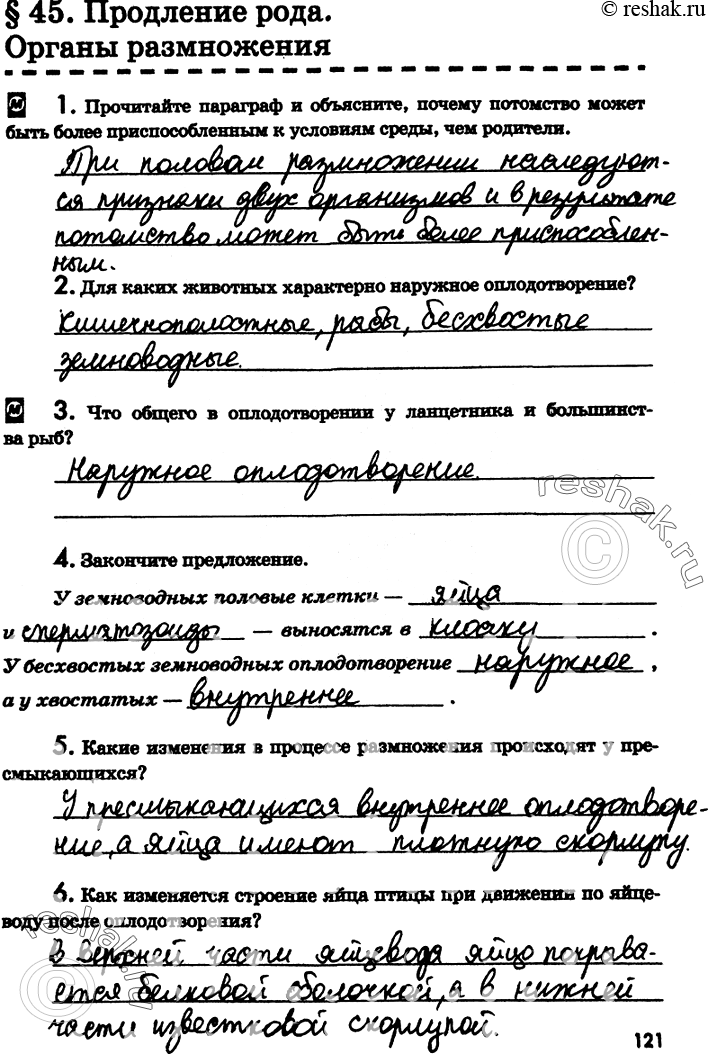 § 45. Продление рода.
© reshak.ru
Органы размножения
1. Прочитайте параграф и объясните, почему потомство может
быть более приспособленным к условиям среды, чем родители.
При половом размножении наследуют-
ся признаки двух организмов и в результате
потомство может быть более приспособлен-
ным.
2. Для каких животных характерно наружное оплодотворение?
Кишечнополостные, рыбы, бесхвостые
земноводные.
3. Что общего в оплодотворении у ланцетника и большинст-
ва рыб?
Наружное оплодотворение.
reshak.ru
4. Закончите предложение.
У земноводных половые клетки — яйца
и сперматозоиды — выносятся в клоаку .
У бесхвостых земноводных оплодотворение наружное ,
а у хвостатых — внутреннее .
5. Какие изменения в процессе размножения происходят у пре-
смыкающихся?
У пресмыкающихся внутреннее оплодотворе-
ние, а яйца имеют плотную скорлупу.
6. Как изменяется строение яйца птицы при движении по яйце-
воду после оплодотворения?
В верхней части яйцевода яйцо покрыва-
ется белковой оболочкой, а в нижней
части известковой скорлупой.
reshak.ru
121